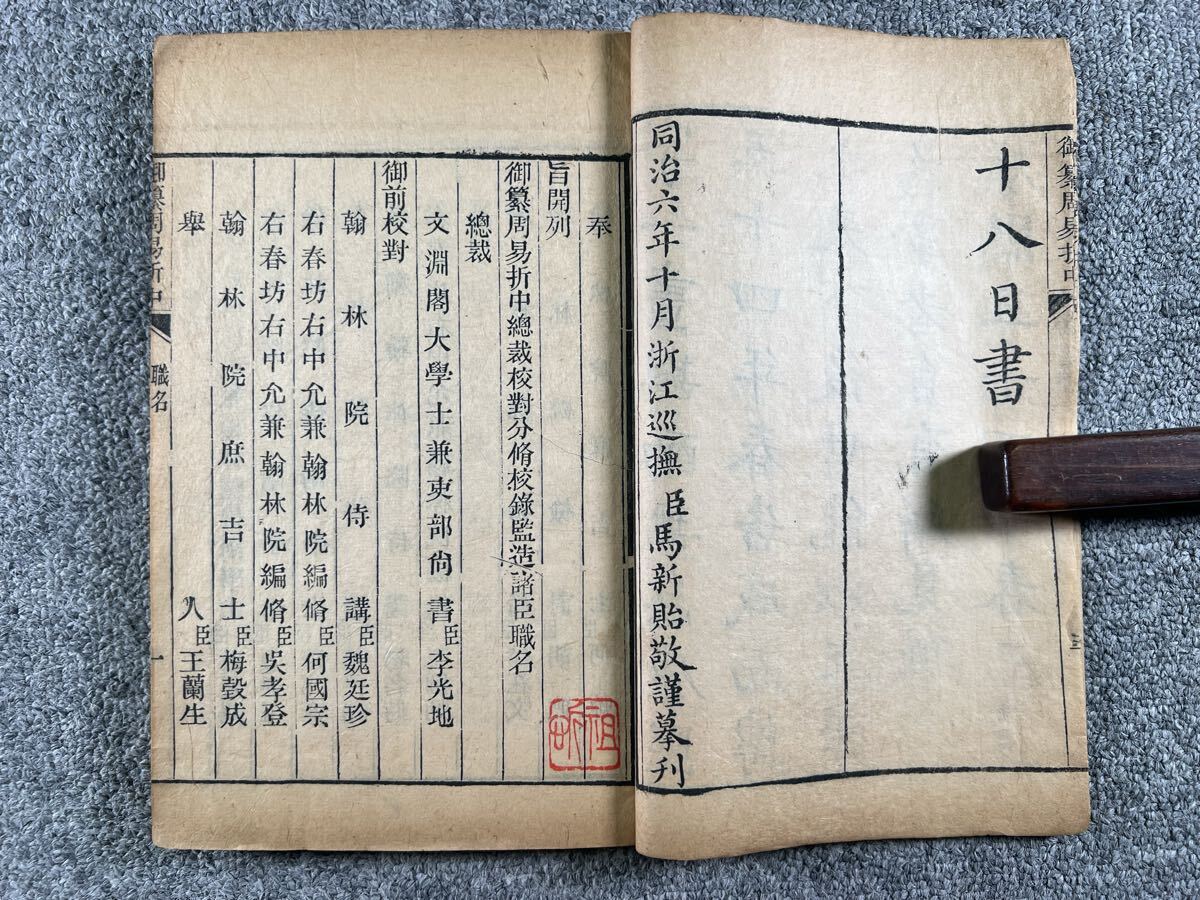 御纂周易折中
三
十八日書
同治六年十月浙江巡撫臣馬新貽敬謹摹刊
奉
旨開列
御纂周易折中總裁校對分脩校錄監造諸臣職名
總裁
文淵閣大學士兼吏部尙書臣李光地
御前校對
翰林院侍講臣魏廷珍
右春坊右中允兼翰林院編脩臣何國宗
右春坊右中允兼翰林院編脩臣吳孝登
翰林院庶吉士臣梅瑴成
舉人臣王蘭生
御纂周易折中
職名
一